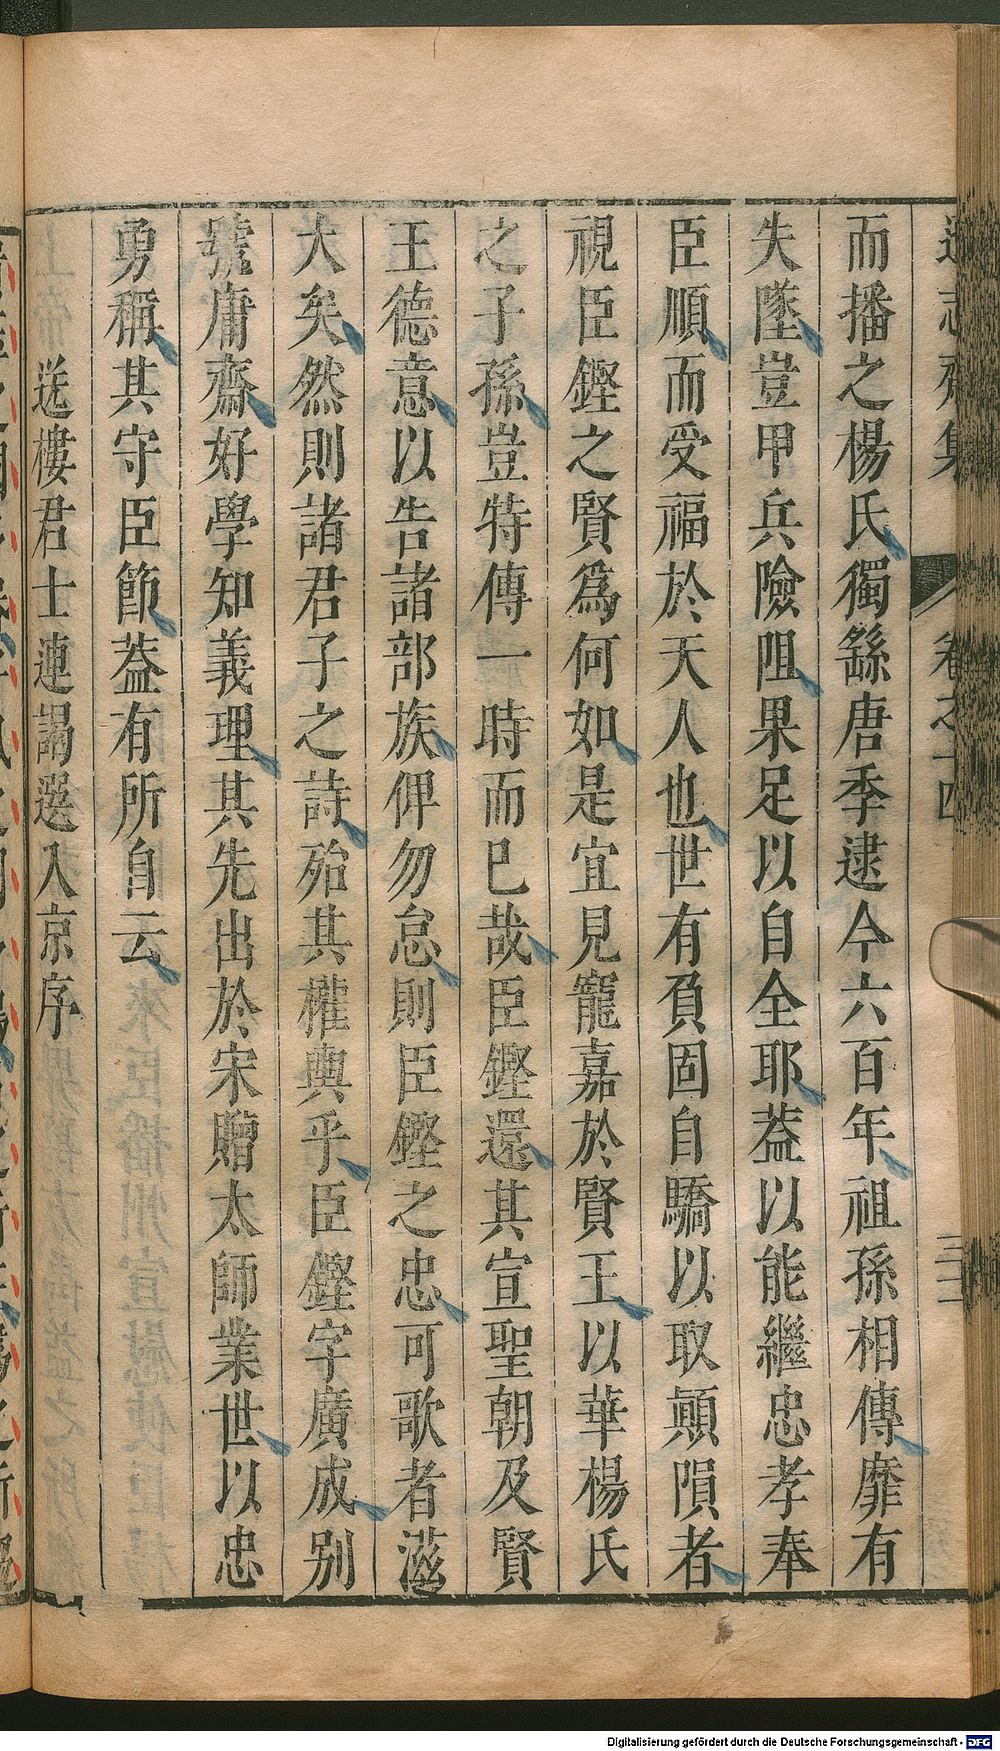 遜志齋集 卷之十四 三二
而播之楊氏獨繇唐季逮今六百年祖孫相傳靡有
失墜豈甲兵險阻果足以自全耶葢以能繼忠孝奉
臣順而受福於天人也世有負固自驕以取顚隕者
視臣鏗之賢爲何如是宜見寵嘉於賢王以華楊氏
之子孫豈特傳一時而已哉臣鏗還其宣聖朝及賢
王德意以告諸部族俾勿怠則臣鏗之忠可歌者滋
大矣然則諸君子之詩殆其權輿乎臣鏗字廣成别
號庸齋好學知義理其先出於宋贈太師業世以忠
勇稱其守臣節葢有所自云
送樓君士連謁選入京序
Digitalisierung gefördert durch die Deutsche Forschungsgemeinschaft - DFG